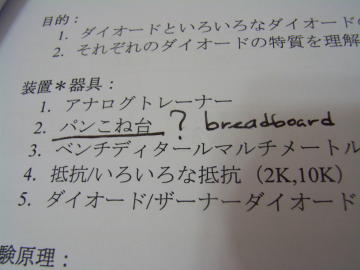 目的：
1. ダイオードといろいろなダイオードの
2. それぞれのダイオードの特質を理解
装置＊器具：
1. アナログトレーナー
2. パンこね台 ? breadboard
3. ベンチディタールマルチメートル
4. 抵抗/いろいろな抵抗（2K,10K）
5. ダイオード/ザーナーダイオード
験原理：